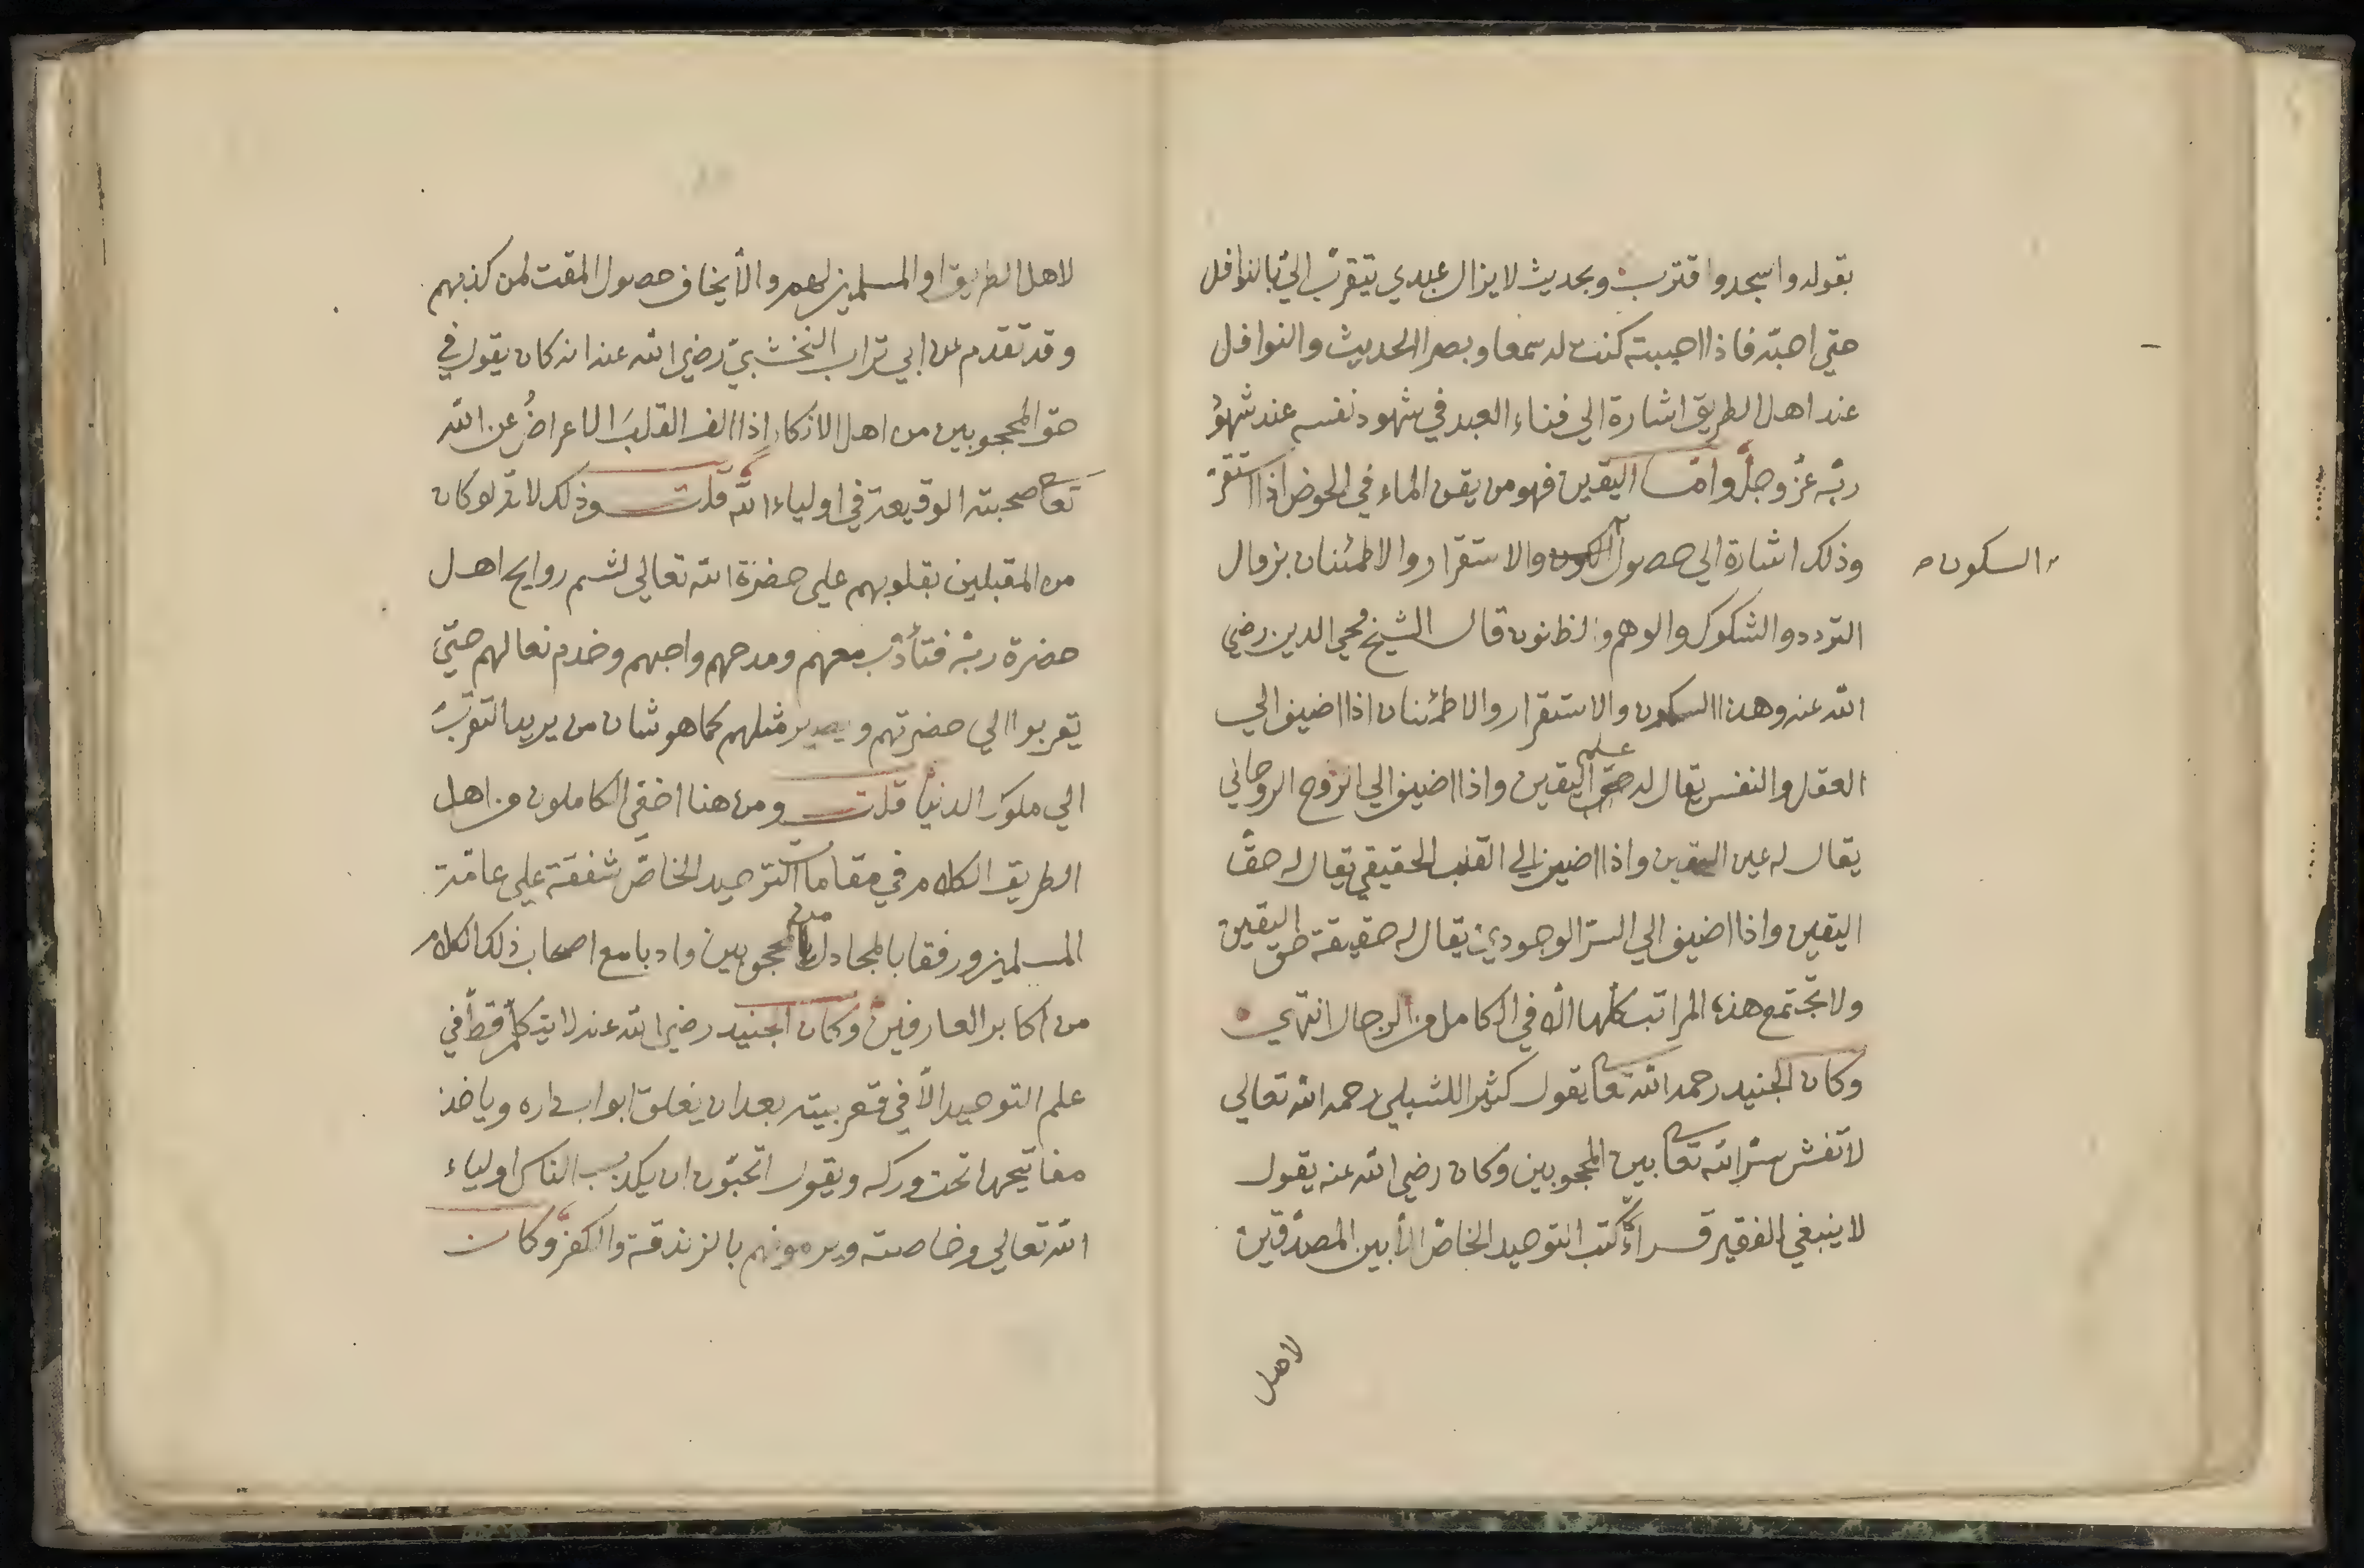 بقوله واسجد واقترب وبحديث لا يزال عبدي يتقرّب اليّ بالنوافل
حتي احبّه فاذا احببته كنت له سمعا وبصرا الحديث والنوافل
عند اهل الطريق اشارة الي فناء العبد في شهود نفسه عند شهوُ
ربّه عزّ وجلّ وامّا اليقين فهو من يقن الماء في الحوض اذا استقرّ
وذلك اشارة الي حصول السكون والاستقرار والاطمئنان بزوال
السكون
التردد والشكوك والوهم والظنون قال الشيخ محيي الدين رضي
الله عنه وهذا السكون والاستقرار والاطمئنان اذا اضيف الي
العقل والنفس يقال له علم اليقين واذا اضيف الي الروح الروحاني
يقال له عين اليقين واذا اضيف الي القلب الحقيقي يقال له حقّ
اليقين واذا اضيف الي السرّ الوجودي يقال له حقيقة حق اليقين
ولا تجتمع هذه المراتب كلّها الّا في الكامل من الرجال انتهي
وكان الجنيد رحمه الله تعا يقول كثيرا للشبلي رحمه الله تعالي
لا تفش سرّ الله تعا بين المحجوبين وكان رضي الله عنه يقول
لا ينبغي الفقير قراءة كتب التوحيد الخاصّ الّا بين المصدّقين
لاهل
لاهل الطريق او المسلمين لهم والّا يخاف حصول المقت لمن كذبهم
وقد تقدم عن ابي تراب النخشبيّ رضي الله عنه انه كان يقول في
حق المحجوبين من اهل الانكار اذا الف القلبَ الاعراضُ عن الله
تعا صحبته الوقيعة في اولياء الله قلت وذلك لانه لو كان
من المقبلين بقلوبهم علي حضرة الله تعالي لشم روايح اهل
حضرة ربّه فتأدّب معهم ومدحهم واحبهم وخدم نعالهم حتّي
يقربوا الي حضرتهم ويصير مثلهم كما هو شان من يريد التقرّبَ
الي ملوك الدنيا قلت ومن هنا اخفي الكاملون من اهل
الطريق الكلام في مقامات التوحيد الخاصّ شفقة علي عامّة
المسلمين ورفقا بالمجادل من المحجوبين وادبا مع اصحاب ذلك الكلام
من اكابر العارفين وكان الجنيد رضي الله عنه لا يتكلّم قطّ في
علم التوحيد الّا في قعر بيته بعد ان يغلق ابواب داره وياخذ
مفاتيحها تحت وركه ويقول اتحبّون ان يكذّب الناس اولياء
الله تعالي وخاصته ويرمونهم بالزندقة والكفر وكان